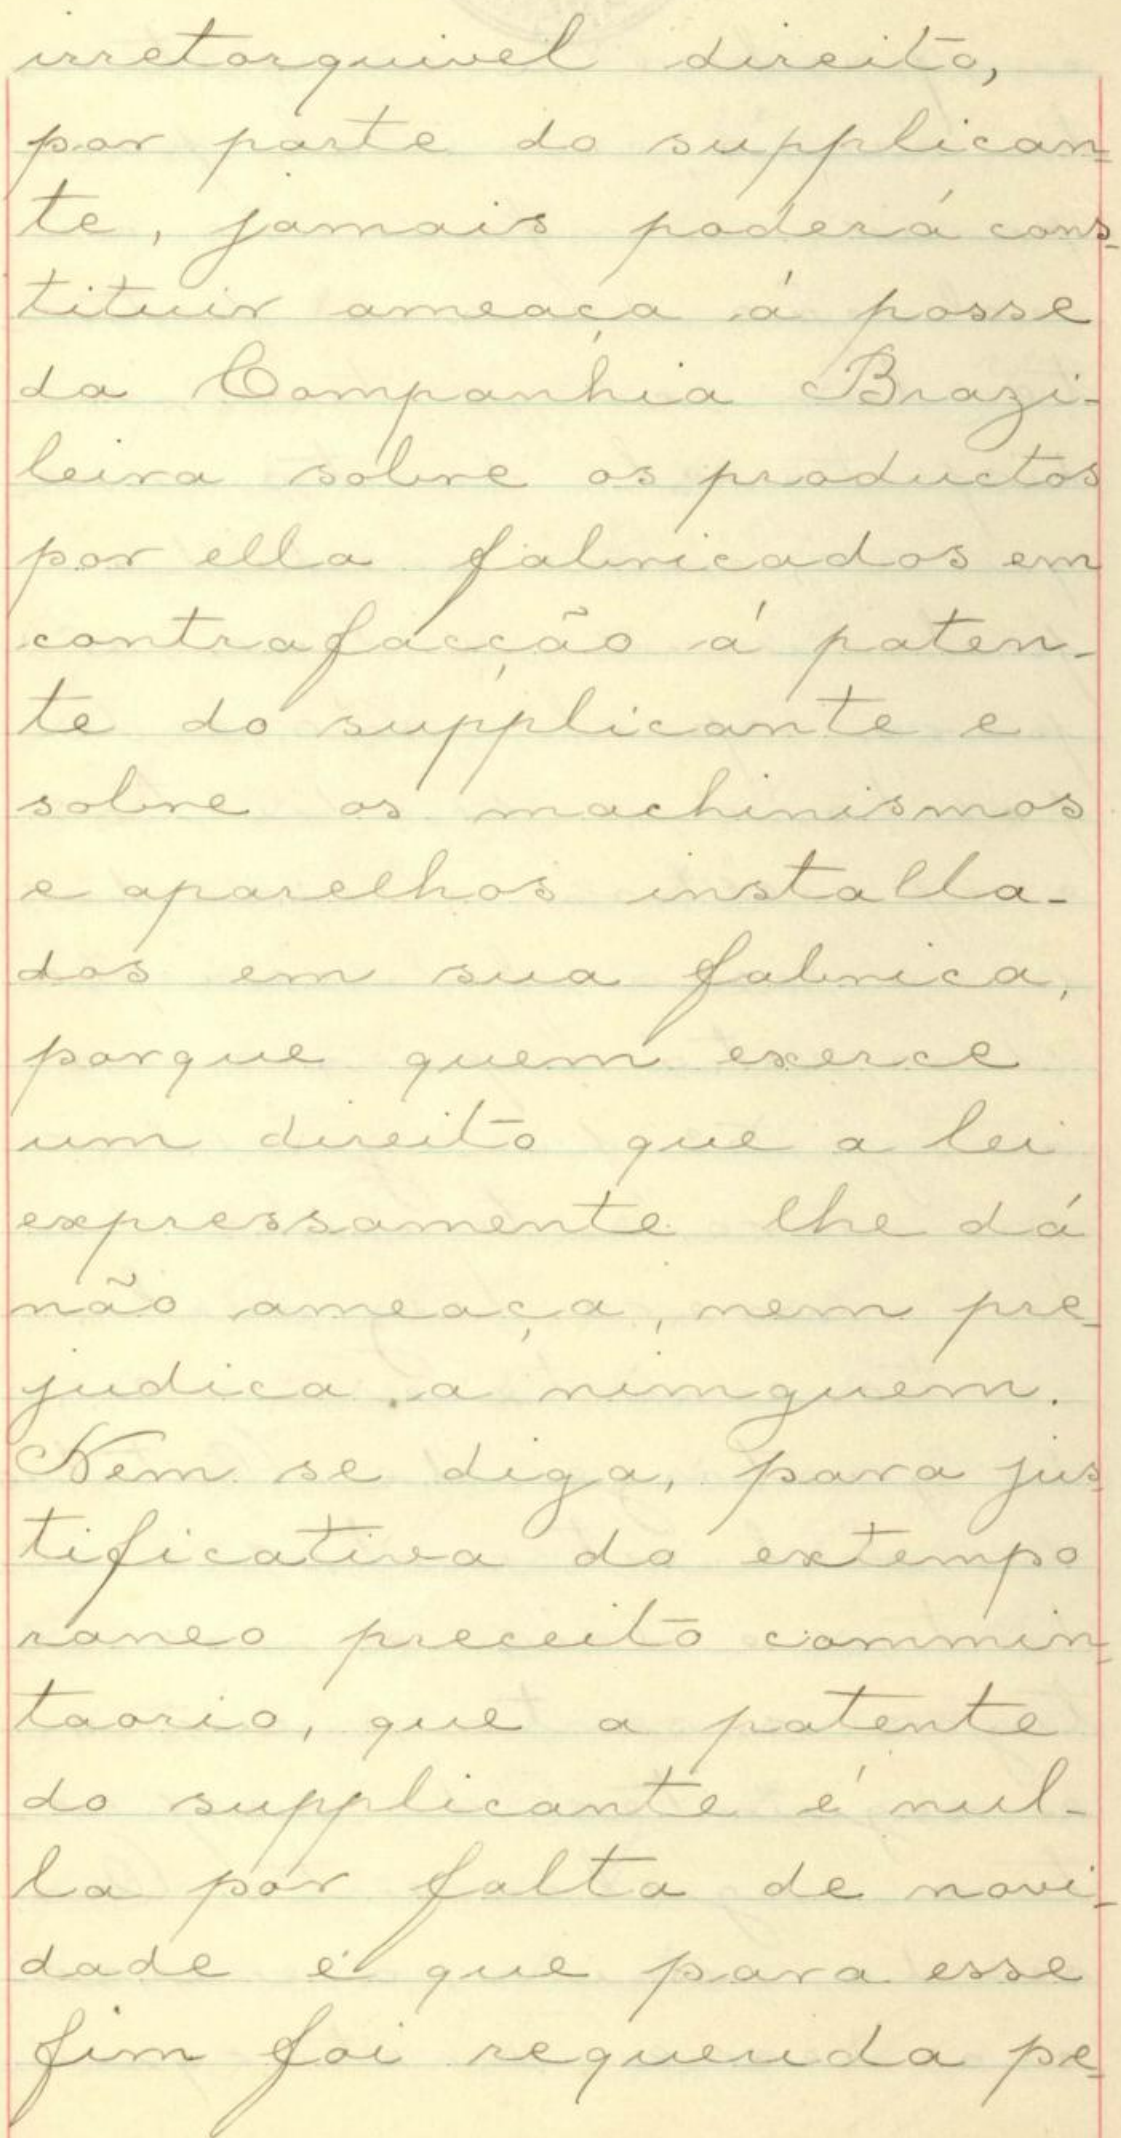 irretorquivel direito,
por parte do supplican-
te, jamais poderá cons-
tituir ameaça á posse
da Companhia Brazi-
leira sobre os productos
por ella fabricados em
contrafacção á paten-
te do supplicante e
sobre os machinismos
e aparelhos installa-
dos em sua fabrica,
porque quem exerce
um direito que a lei
expressamente lhe dá
não ameaça, nem pre-
judica a nimguem.
Nem se diga, para jus-
tificativa do extempo
raneo preceito commin-
taorio, que a patente
do supplicante é nul-
la por falta de novi-
dade é que para esse
fim foi requerida pe-